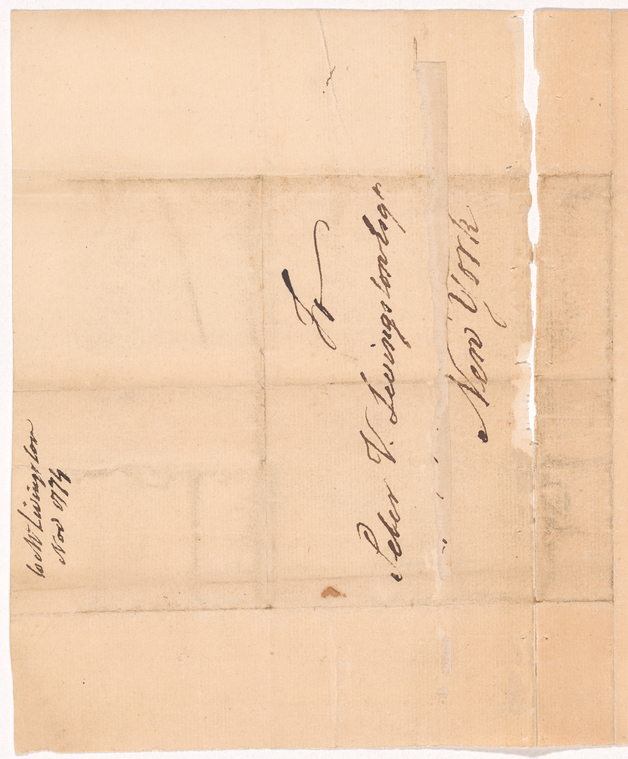 To
Peter V. Livingston Esqr
New York
Wm Livingston
Nov 1774